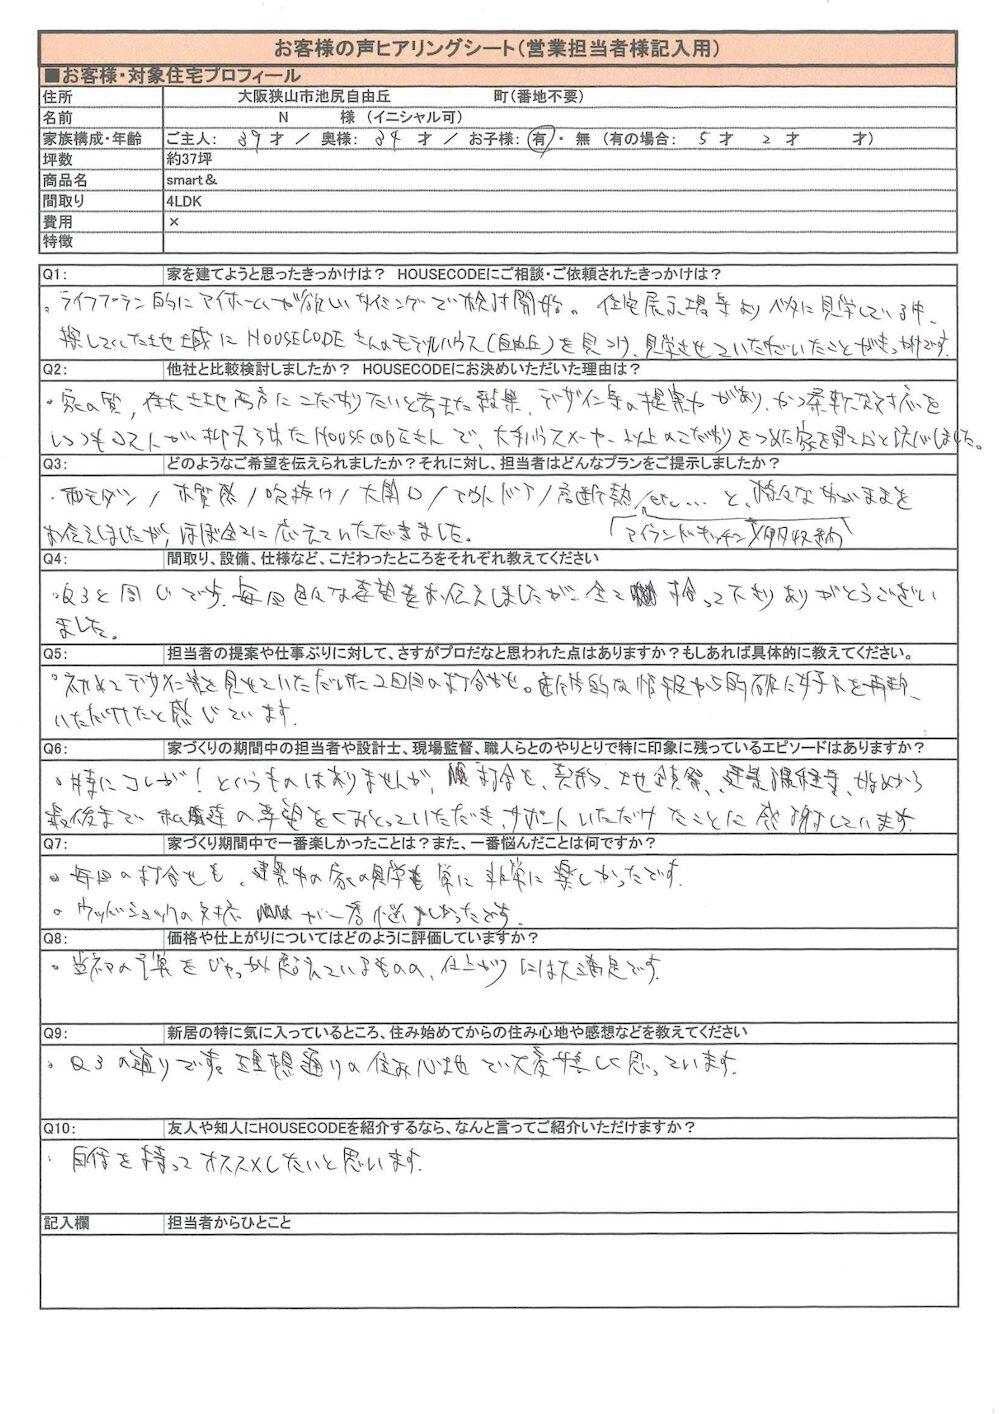 お客様の声ヒアリングシート(営業担当者様記入用)
■お客様・対象住宅プロフィール
住所 大阪狭山市池尻自由丘 町(番地不要)
名前 N 様 (イニシャル可)
家族構成・年齢 ご主人: 39 才 / 奥様: 34 才 / お子様: 有 ・ 無 (有の場合: 5 才 2 才 才)
坪数 約37坪
商品名 smart&
間取り 4LDK
費用 ×
特徴
Q1: 家を建てようと思ったきっかけは? HOUSECODEにご相談・ご依頼されたきっかけは?
。ライフプラン的にマイホームが欲しいタイミングで検討開始。住宅展示場等 見学している中、
探していた地域にHOUSECODEさんのモデルハウス(自由丘)を見つけ、見学させていただいたことがきっかけです。
Q2: 他社と比較検討しましたか? HOUSECODEにお決めいただいた理由は?
・家の質, 土地両方にこだわりたいと考えた結果、デザイン等の提案力があり、かつ柔軟な対応を
しつつもコストが抑えられたHOUSECODEさんで、大手ハウスメーカー以上のこだわりをつめた家を建てようと決めました。
Q3: どのようなご希望を伝えられましたか?それに対し、担当者はどんなプランをご提示しましたか?
・和モダン / 木質感 / 吹抜け / 大開口 / / 高断熱 / etc... と、様々なわがままを
お伝えしましたが、ほぼ全てに応えていただきました。 アイランドキッチン / 収納
Q4: 間取り、設備、仕様など、こだわったところをそれぞれ教えてください
・Q3と同じです。毎回色んな希望をお伝えしましたが、全て 拾って下さりありがとうござい
ました。
Q5: 担当者の提案や仕事ぶりに対して、さすがプロだなと思われた点はありますか?もしあれば具体的に教えてください。
。初めてデザイン等を見せていただいた2回目の打合せ。 的な情報から的確に 再現
いただけたと感じています。
Q6: 家づくりの期間中の担当者や設計士、現場監督、職人らとのやりとりで特に印象に残っているエピソードはありますか?
。特にコレが!というものはありませんが、打合せ、契約、地鎮祭、 等、始めから
最後まで私達の希望をくみとっていただき、サポートいただけたことに感謝しています。
Q7: 家づくり期間中で一番楽しかったことは?また、一番悩んだことは何ですか?
。毎回の打合せも、建築中の家の見学も常に非常に楽しかったです。
。ウッドショックの対応 が一番悩ましかったです。
Q8: 価格や仕上がりについてはどのように評価していますか?
。当初の予算をじゃっかん超えているものの、仕上がりには大満足です。
Q9: 新居の特に気に入っているところ、住み始めてからの住み心地や感想などを教えてください
。Q3の通りです。理想通りの住み心地で大変嬉しく思っています。
Q10: 友人や知人にHOUSECODEを紹介するなら、なんと言ってご紹介いただけますか?
・自信を持ってオススメしたいと思います。
記入欄 担当者からひとこと